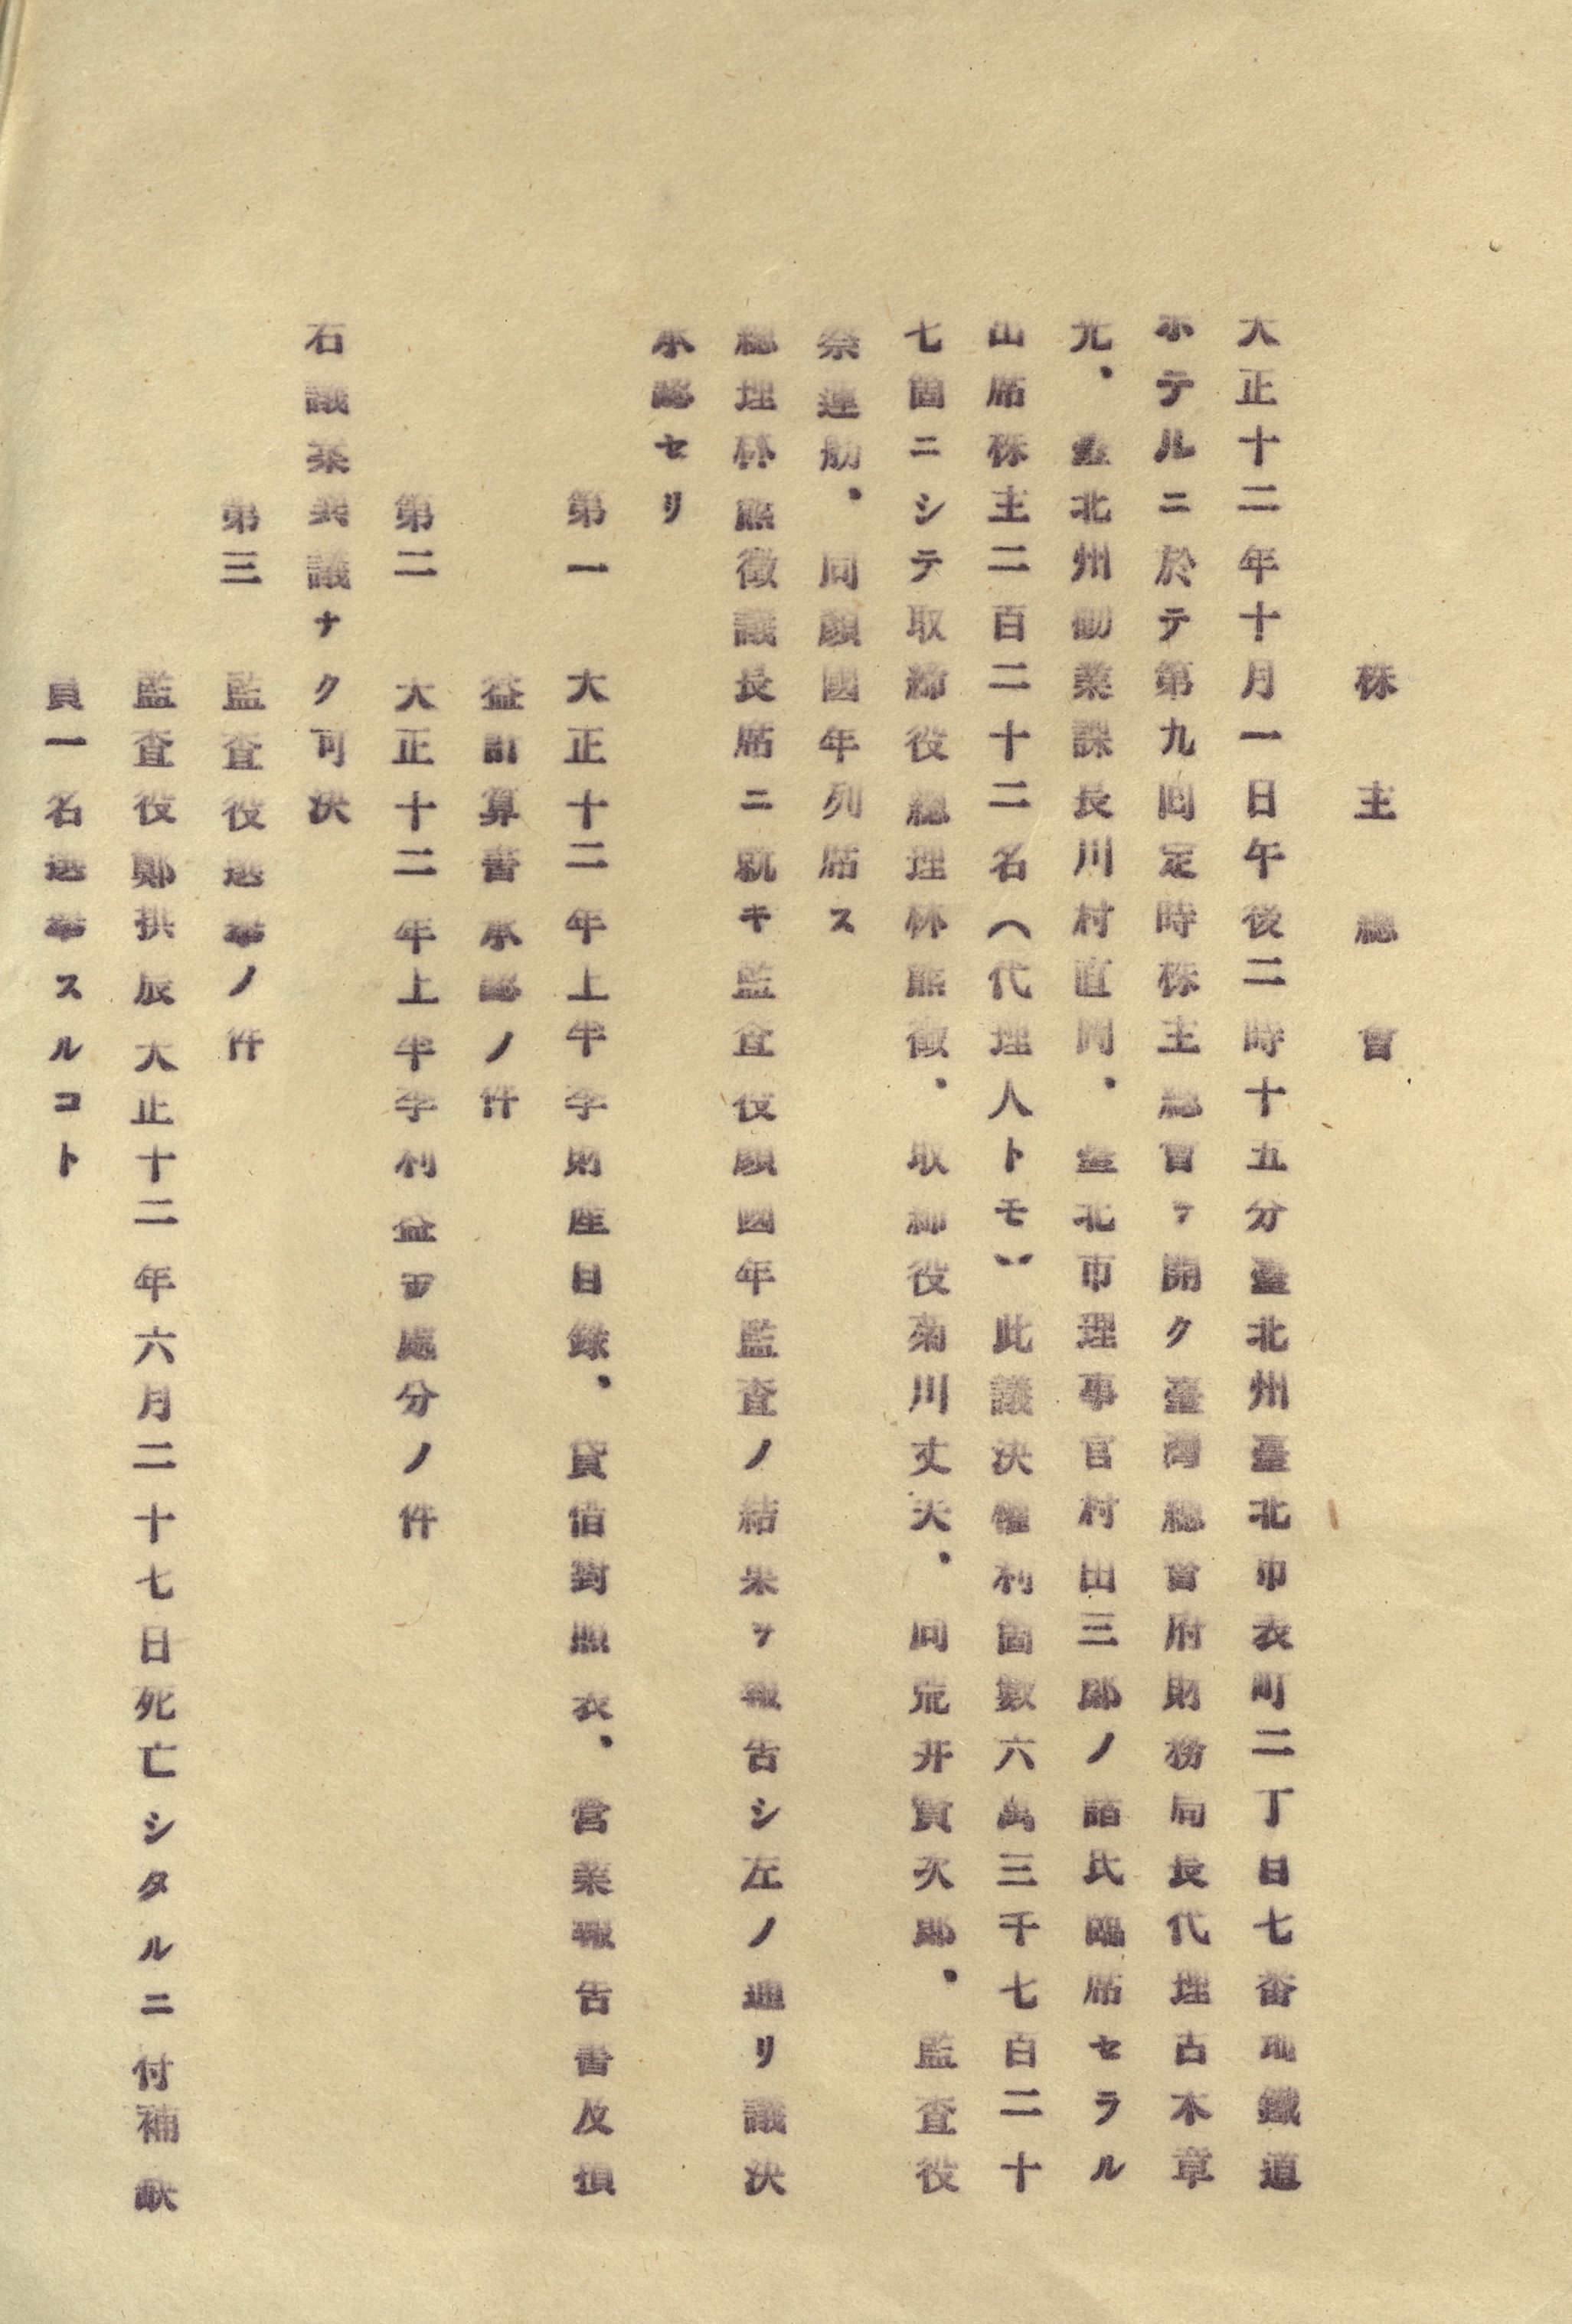 株主總會
大正十二年十月一日午後二時十五分臺北州臺北市表町二丁目七番地鐵道
ホテルニ於テ第九回定時株主總會ヲ開ク臺灣總督府財務局長代理古木章
光、臺北州勸業課長川村直岡、臺北市理事官村田三郎ノ諸氏臨席セラル
出席株主二百二十二名(代理人トモ)此議決權利箇數六萬三千七百二十
七箇ニシテ取締役總理林熊徵、取締役菊川丈夫、同荒井賀次郎、監査役
蔡蓮舫、同顏國年列席ス
總理林熊徵議長席ニ就キ監査役顏國年監査ノ結果ヲ報告シ左ノ通リ議決
承認セリ
第一　大正十二年上半季財產目錄、貸借對照表、營業報告書及損
益計算書承認ノ件
第二　大正十二年上半季利益金處分ノ件
右議案異議ナク可決
第三　監査役選擧ノ件
監査役鄭拱辰大正十二年六月二十七日死亡シタルニ付補缺
員一名選擧スルコト